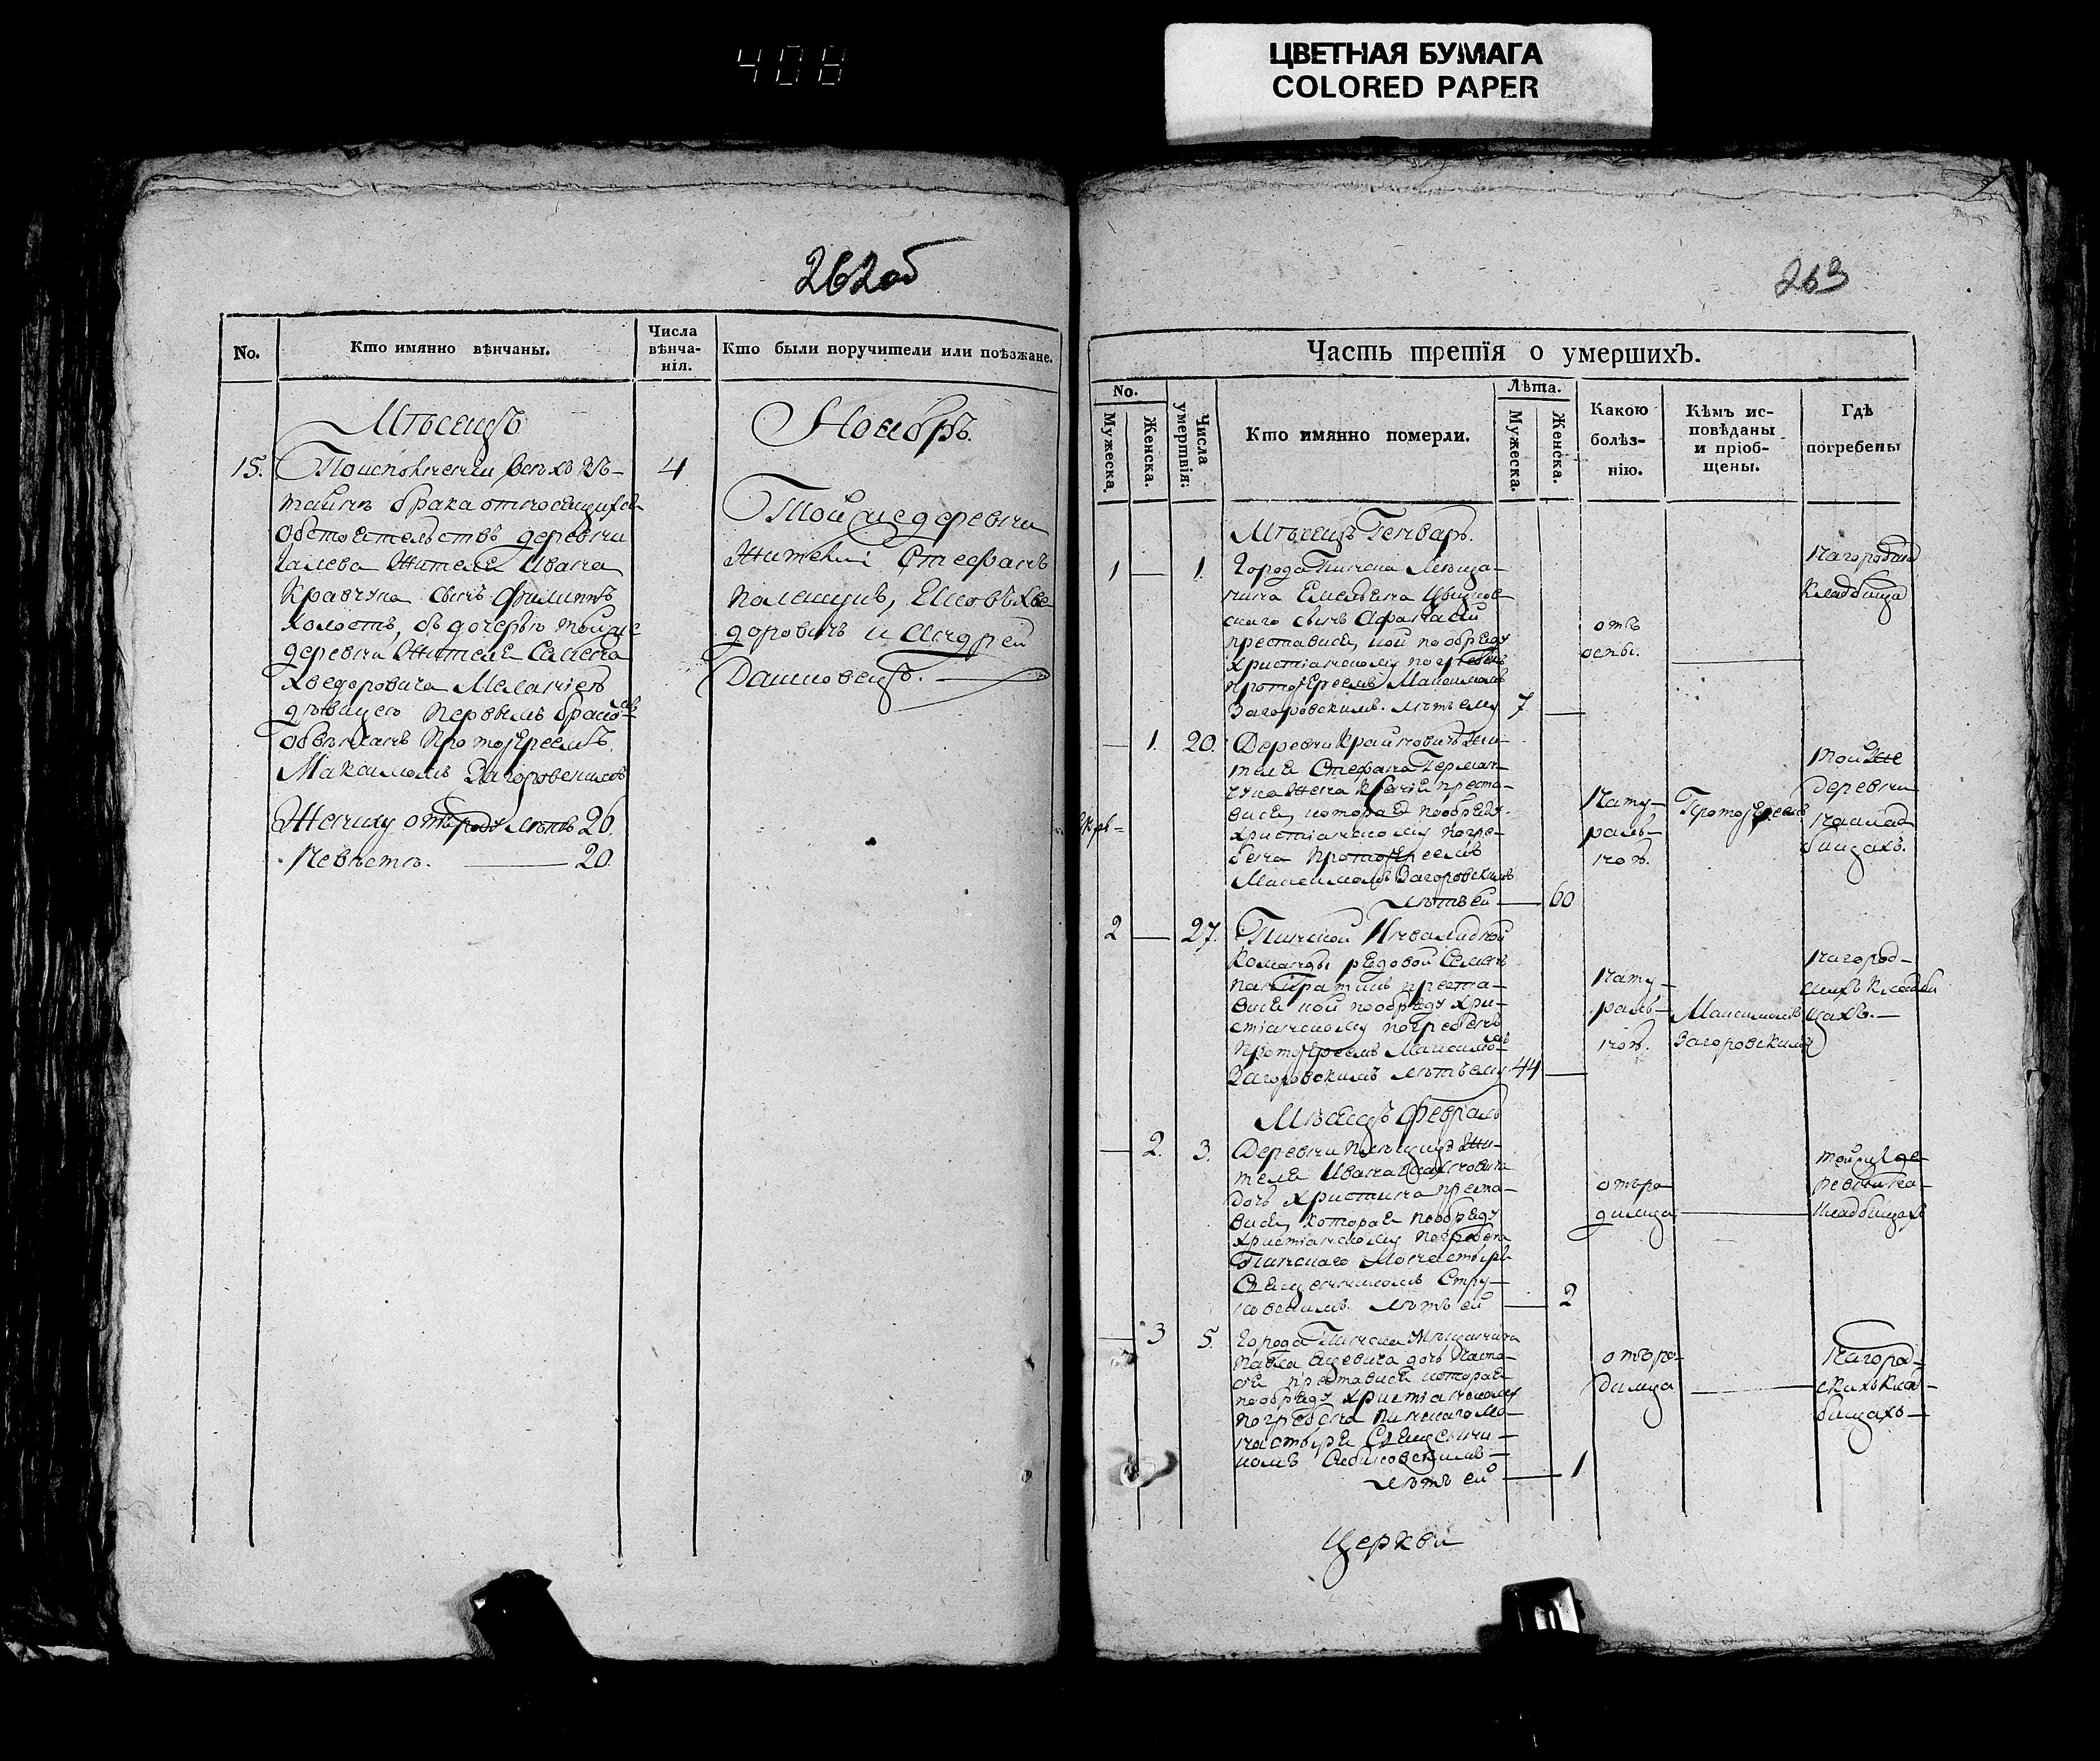 408
ЦВЕТНАЯ БУМАГА
COLORED PAPER
262об
No.
Кто имянно вѣнчаны.
Числа
вѣнча-
нія.
Кто были поручители или поѣзжане.
Мѣсяцъ
Ноябрь.
15.
По исполненіи всѣхъ къ
4
таинѣ брака относящихся
обстоятельствъ деревни
жителя Ивана
Кравчука сынъ Филиппъ
холостъ, съ дочерью той же
деревни жителя Семена
Хведоровича Меланіею
дѣвицею первымъ бракомъ
обвѣнчанъ Протоіереемъ
Максимомъ Загоровскимъ
Жениху отъ роду лѣтъ 26.
Невѣстѣ. — 20.
Той же деревни
жители Стефанъ
Полещукъ, Яковъ Хве
доровичъ и Андрей
263
Часть третія о умершихъ.
No.
Мужеска.
Женска.
Числа
умертвія:
Кто имянно померли.
Лѣта.
Мужеска.
Женска.
Какою
болѣз-
нію.
Кѣмъ ис-
повѣданы
и пріоб-
щены.
Гдѣ
погребены
Мѣсяцъ Генварь.
1 — 1.
Города Пинска мѣща-
нина Емельяна
скаго сынъ Афанасій
преставися, кой по обряду
христіанскому погребенъ
Протоіереемъ Максимомъ
Загоровскимъ. лѣтъ ему 7 —
отъ
оспы.
кладбища
— 1. 20.
Деревни жи-
теля Стефана Герман-
чука жена преста-
вися, которая по обряду
христіанскому погре-
бена Протоіереемъ
Максимомъ Загоровскимъ
лѣтъ ей — 60
Нату-
раль-
ною.
Протоіереемъ
той же
деревни
на клад
бищахъ.
2 — 27.
Пинской Инвалидной
Команды рядовой Семенъ
преста-
вися кой по обряду хри-
стіанскому погребенъ
Протоіереемъ Максимомъ
Загоровскимъ лѣтъ ему 44 —
Нату-
раль-
ною.
Максимомъ
Загоровскимъ
на город-
скихъ кладби
щахъ. —
Мѣсяцъ Февраль
— 2. 3.
Деревни жи-
теля Ивана
дочь Христина преста-
вися, которая по обряду
христіанскому погребена
Пинскаго Монастыря
Священникомъ Стру-
ковскимъ. лѣтъ ей — 2
отъ ро
димца
той же де-
ревни на
кладбищахъ
— 3 5.
Города Пинска мѣщанина
Павла дочь Наста-
сія преставися которая
по обряду христіанскому
погребена Пинскаго Мо-
настыря Священни-
комъ
лѣтъ ей — 1.
отъ ро-
димца
На город-
скихъ клад-
бищахъ —
Церкви